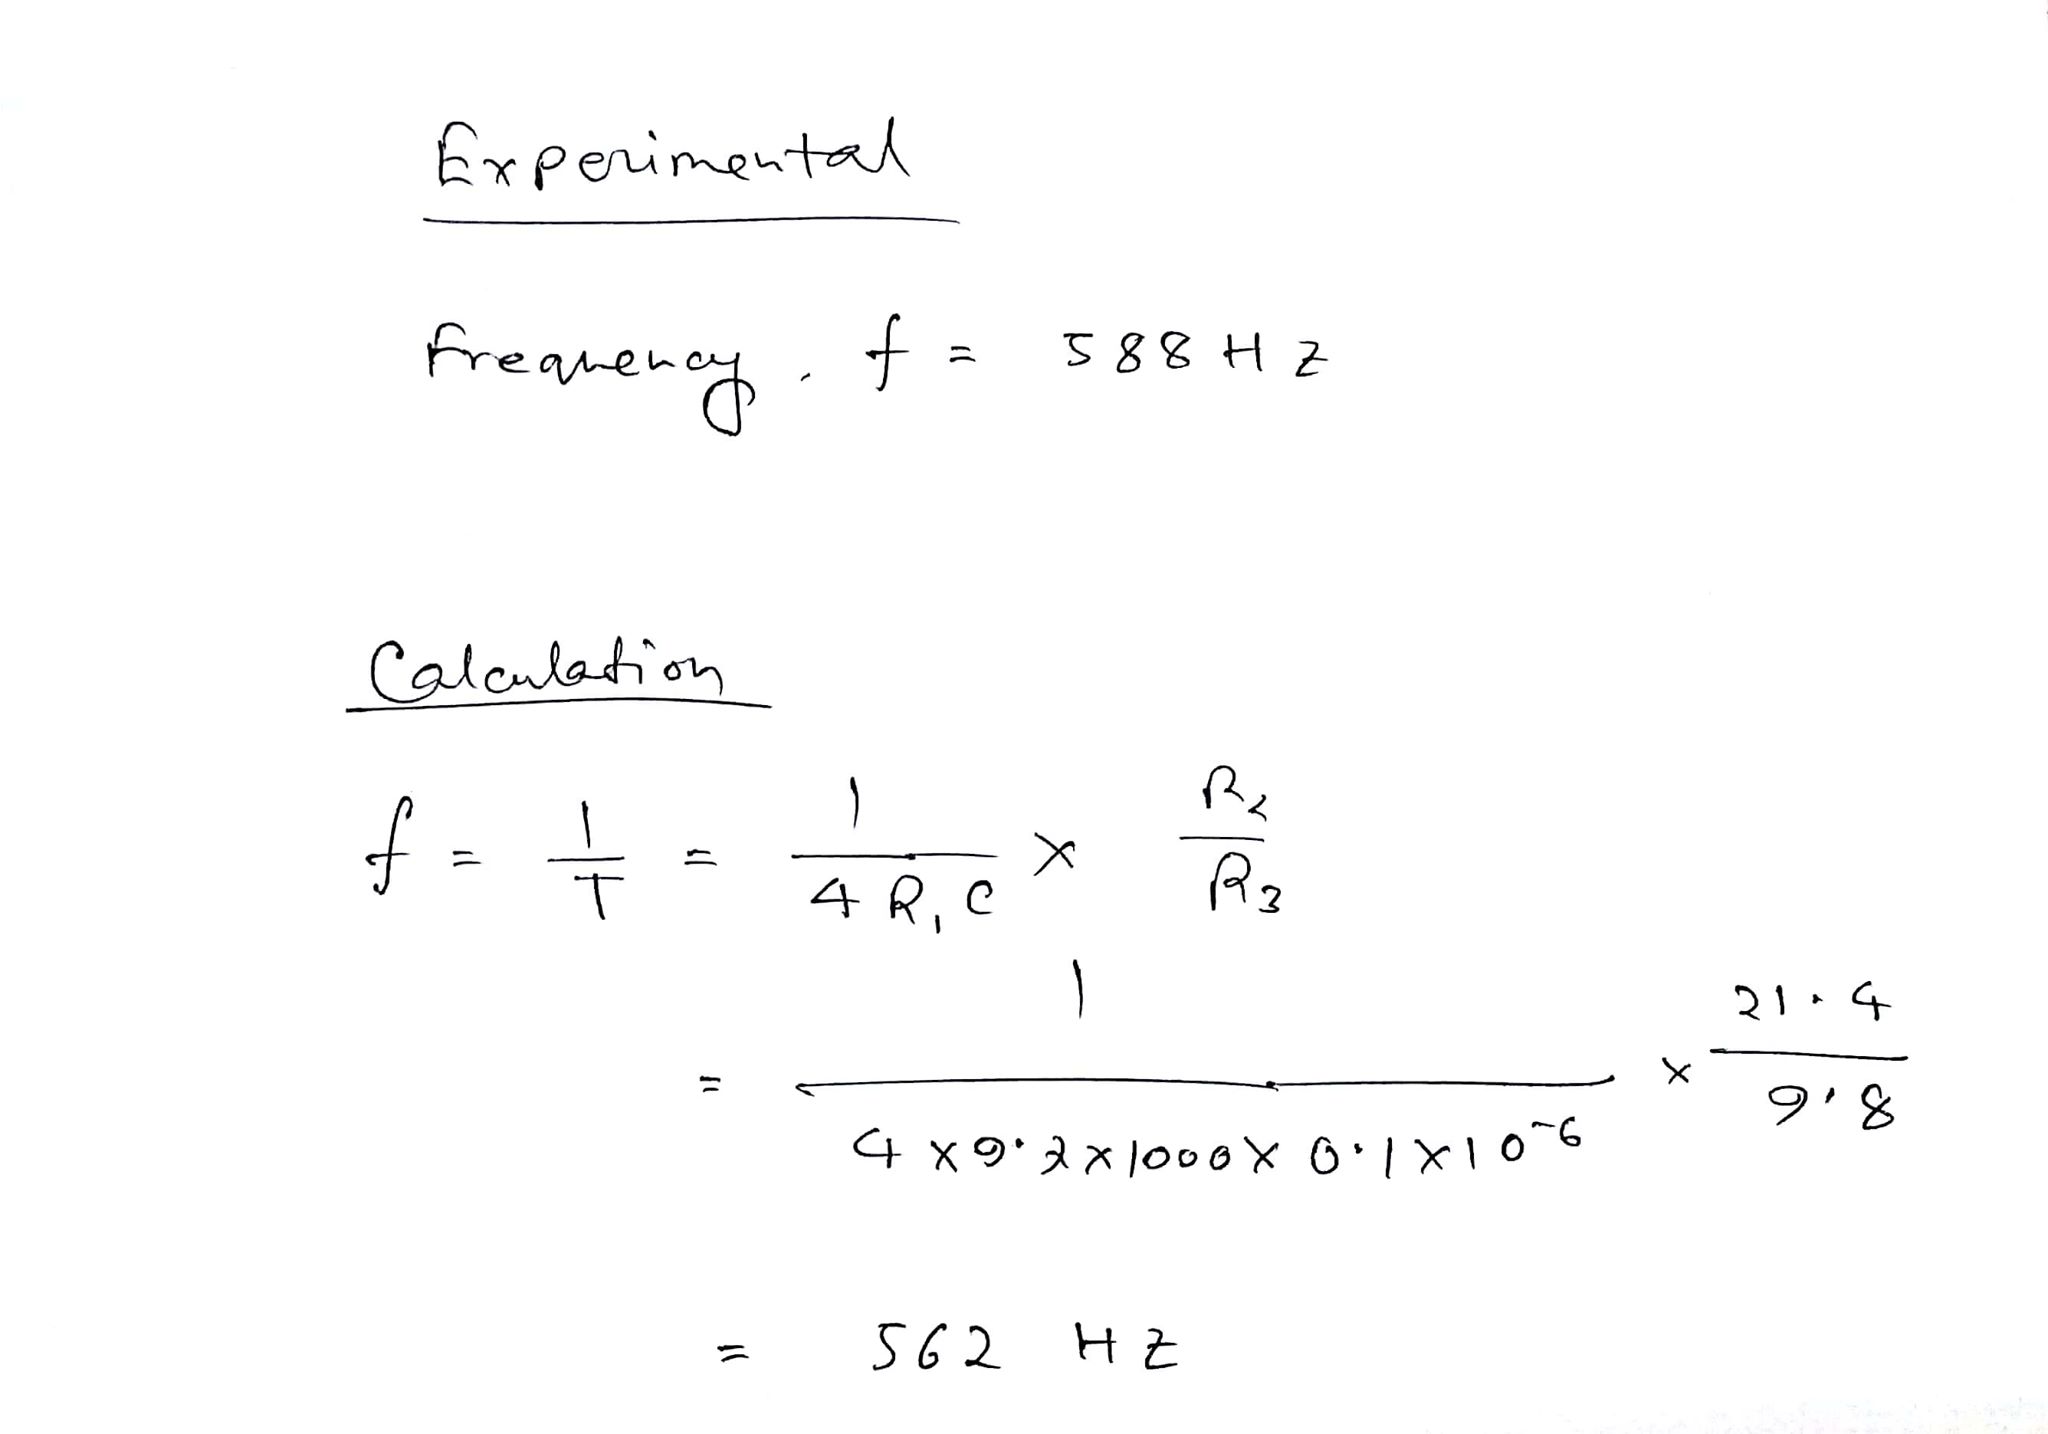 Experimental
Frequency, f = 588 Hz
Calculation
f = 1/T = 1/(4 R₁ C) × R₂/R₃
= 1/(4 × 9.2 × 1000 × 0.1 × 10⁻⁶) × 21.4/9.8
= 562 Hz